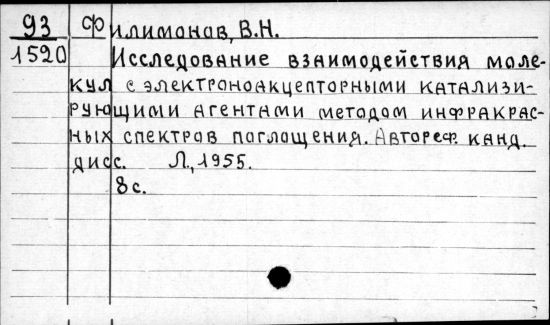 93 Филимонов, В.Н.
1520 Исследование взаимодействия моле-
кул с электроноакцепторными катализи-
рующими агентами методом инфракрас-
ных спектров поглощения. Автореф. канд.
дисс. Л., 1955.
8 с.